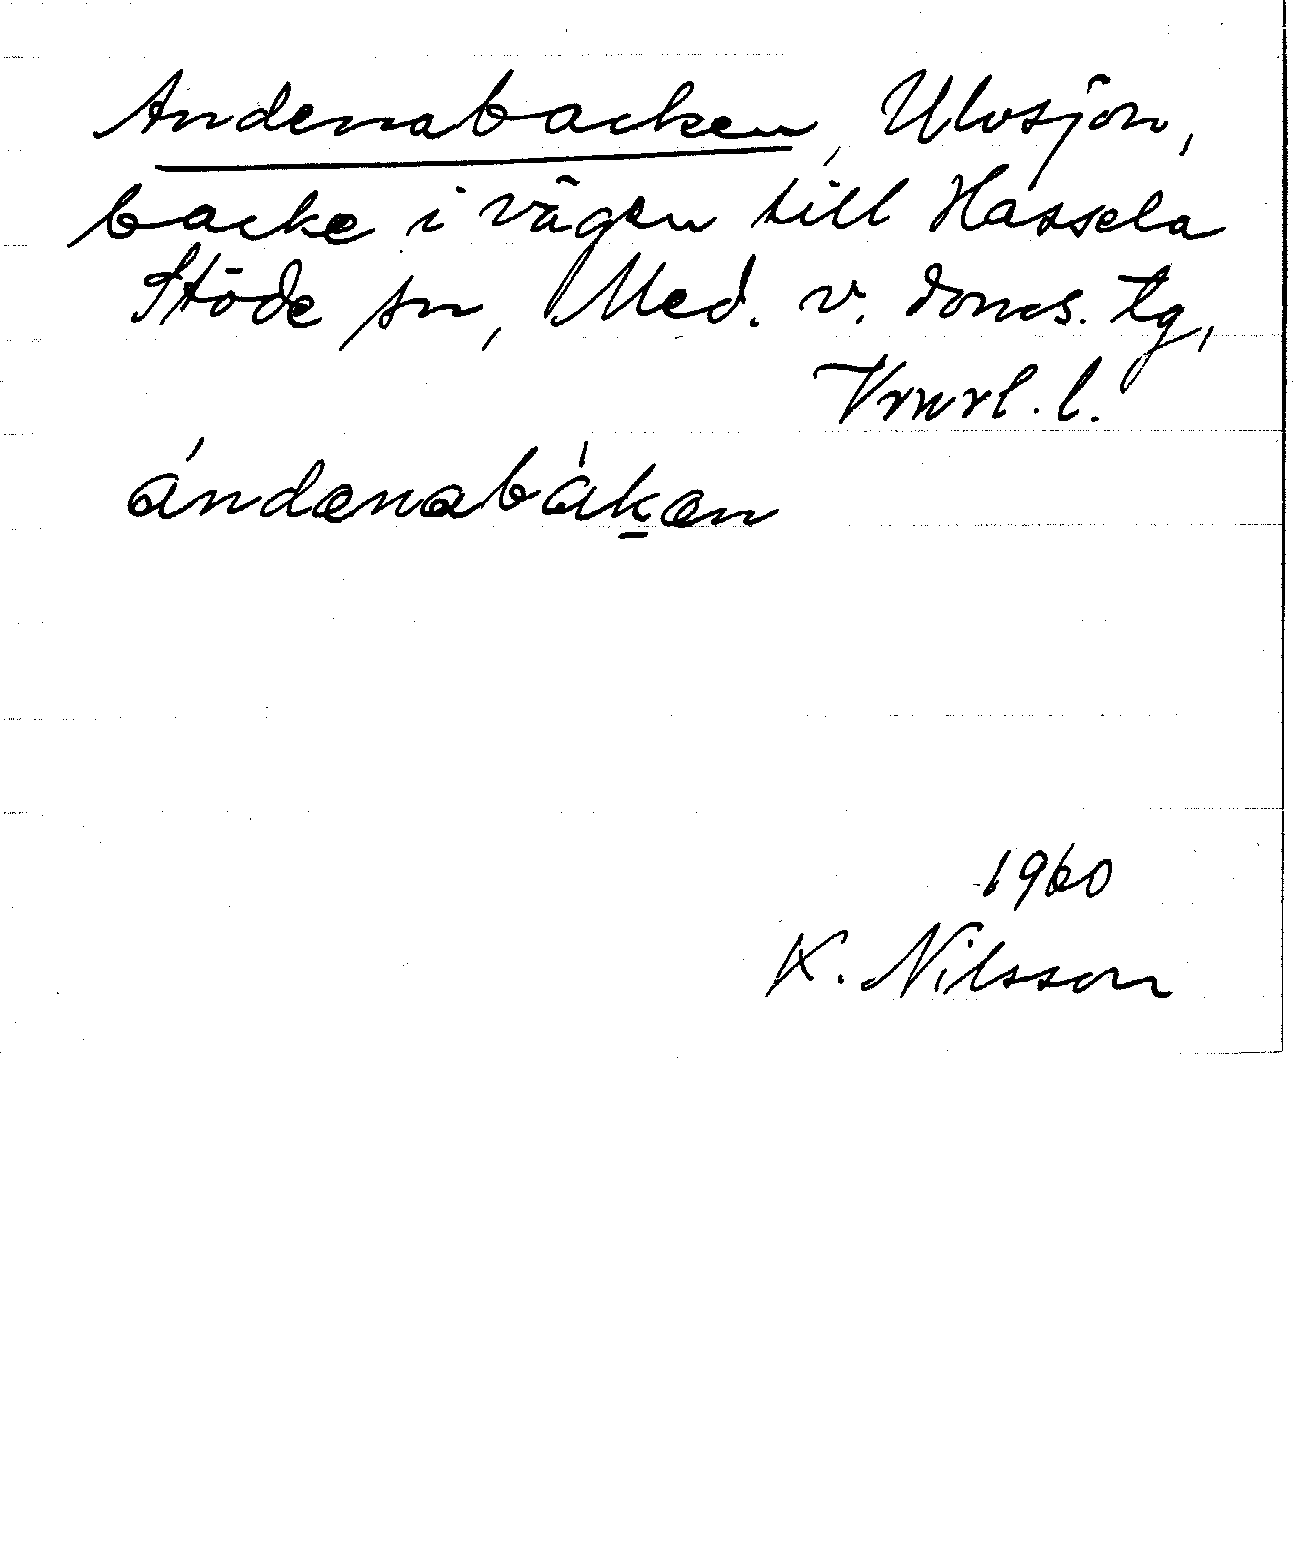 Andenabacken, Ulvsjön,
backe i vägen till Hassela
Stöde sn, Med. v. doms. tg,
Vrnrl. l.
ándenabàk̠en
1960
K. Nilsson